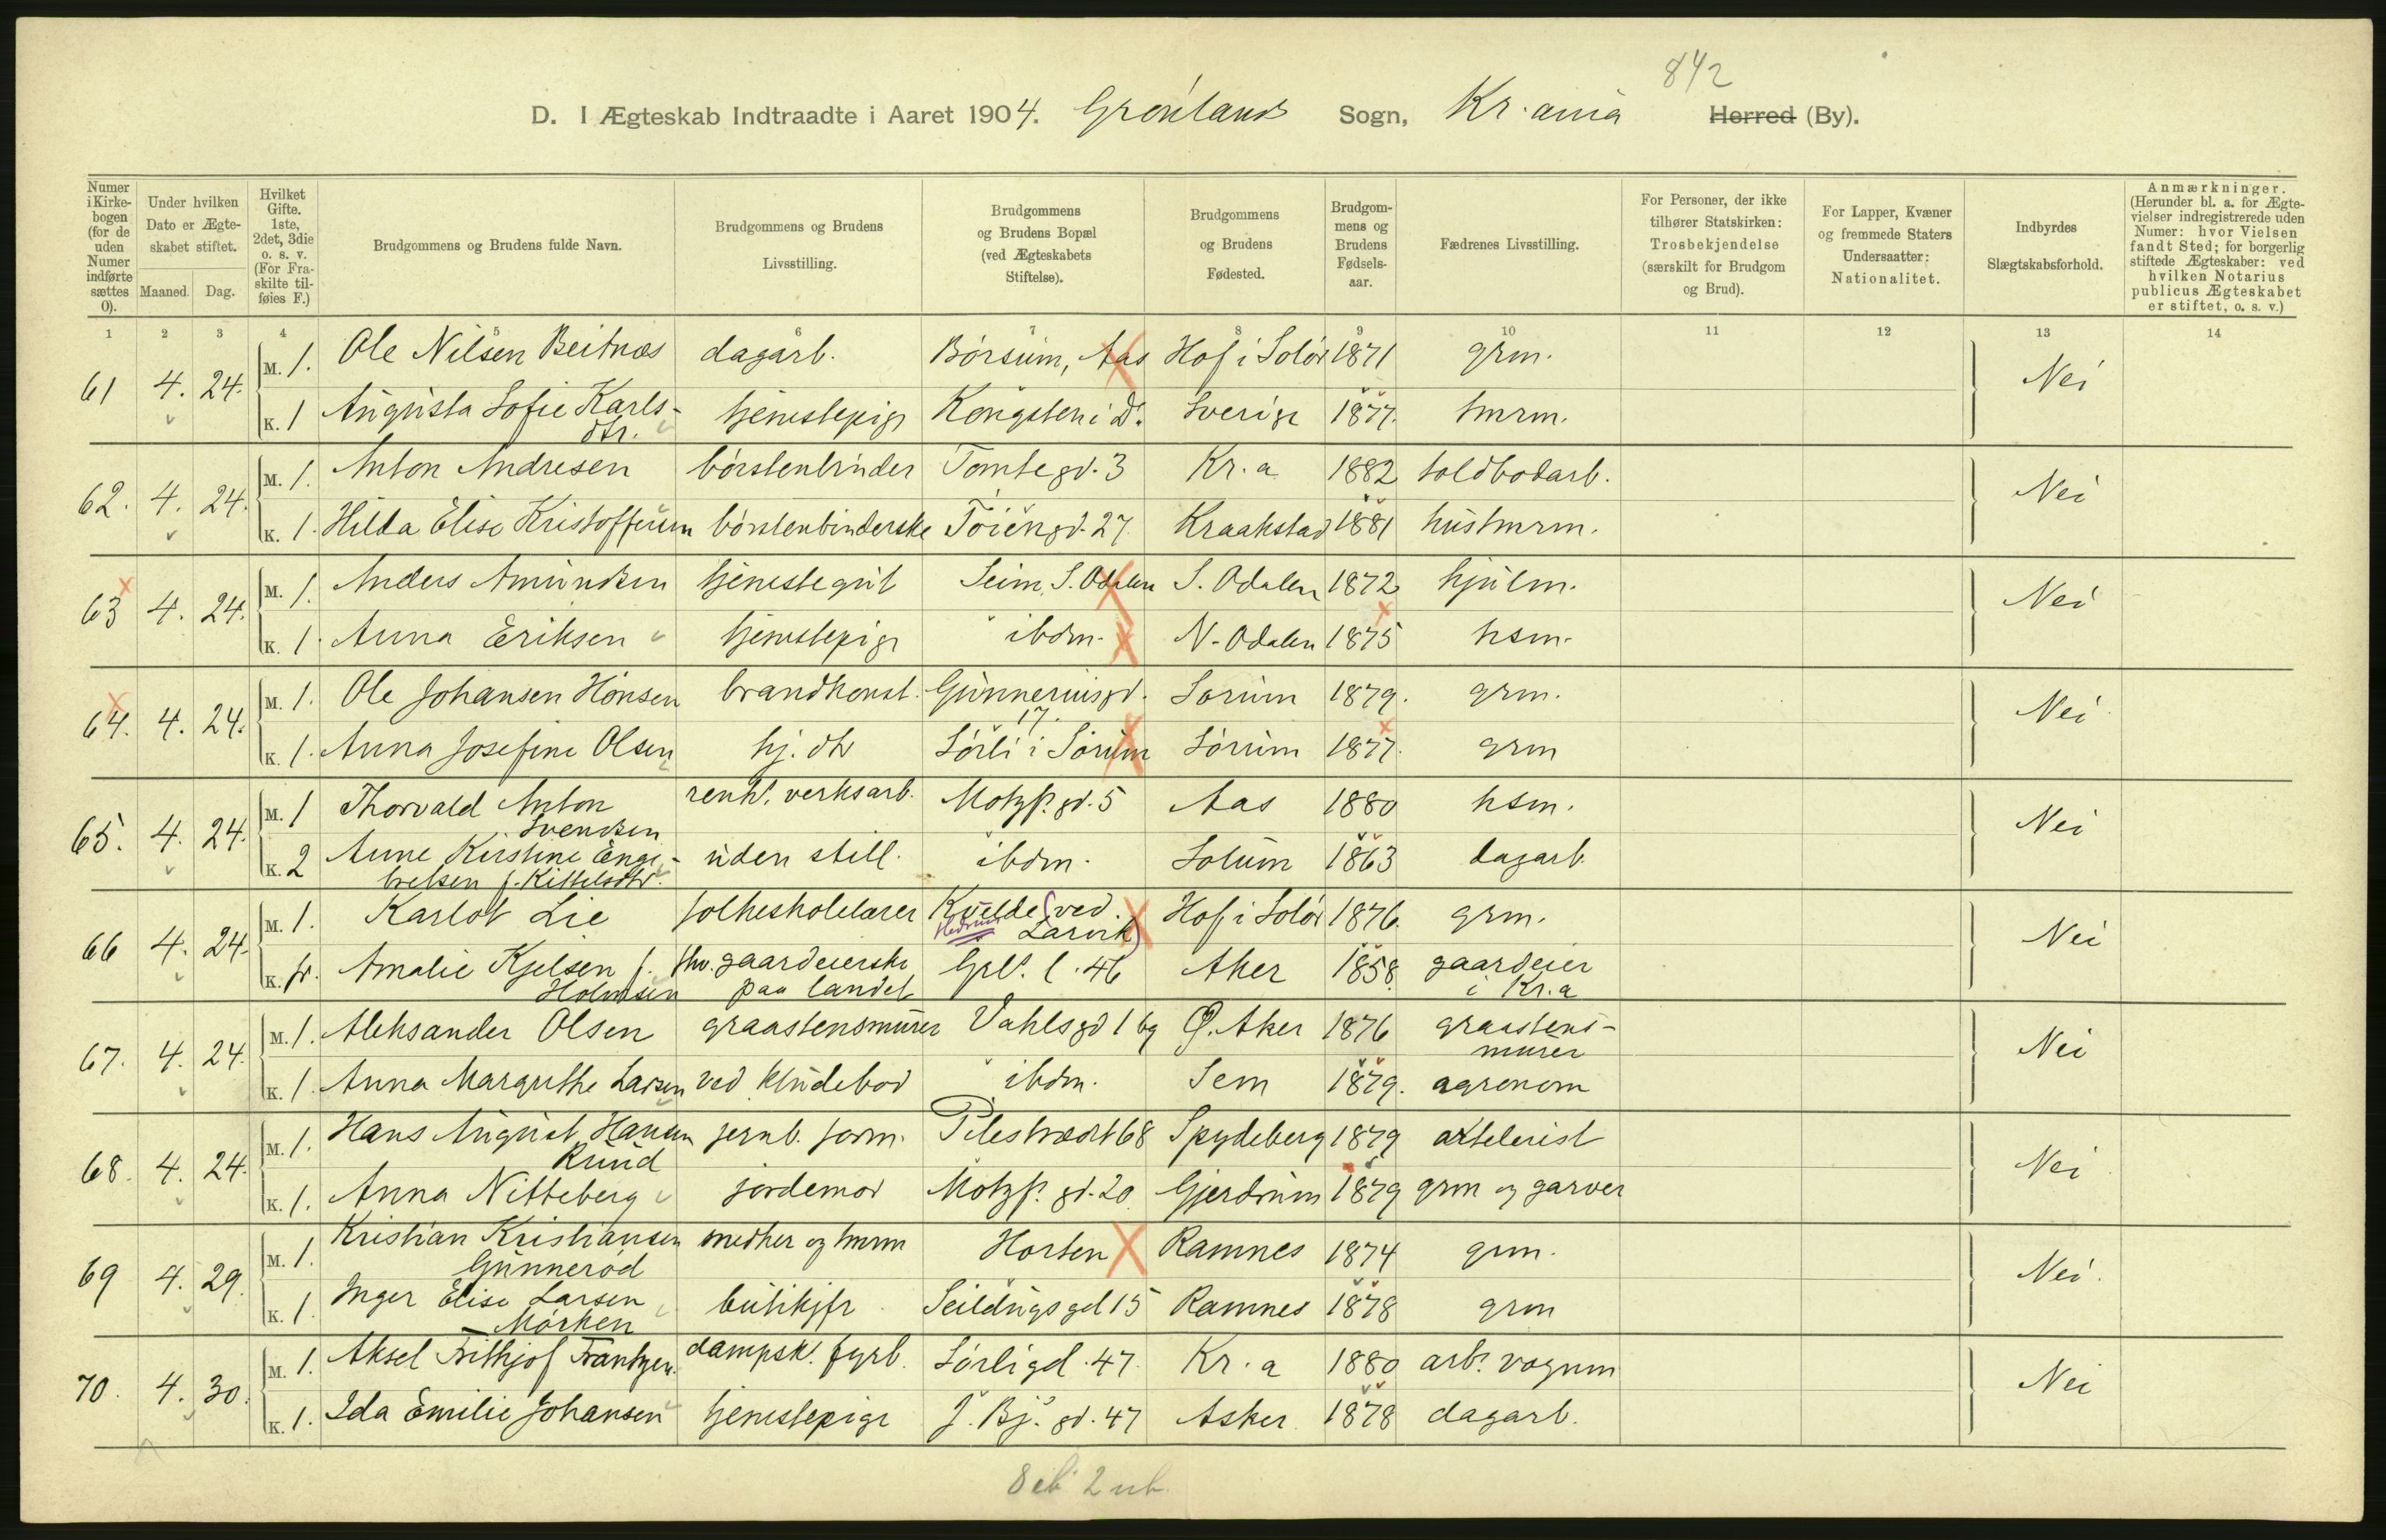 842
D. I Ægteskab Indtraadte i Aaret 1904. Grønlands Sogn, Kr.ania Herred (By).
Numer i Kirkebogen (for de uden Numer indførte sættes 0).
Under hvilken Dato er Ægteskabet stiftet. Maaned. Dag.
Hvilket Gifte. 1ste, 2det, 3die o. s. v. (For Fraskilte tilføies F.)
Brudgommens og Brudens fulde Navn.
Brudgommens og Brudens Livsstilling.
Brudgommens og Brudens Bopæl (ved Ægteskabets Stiftelse).
Brudgommens og Brudens Fødested.
Brudgommens og Brudens Fødselsaar.
Fædrenes Livsstilling.
For Personer, der ikke tilhører Statskirken: Trosbekjendelse (særskilt for Brudgom og Brud).
For Lapper, Kvæner og fremmede Staters Undersaatter: Nationalitet.
Indbyrdes Slægtskabsforhold.
Anmærkninger. (Herunder bl. a. for Ægtevielser indregistrerede uden Numer: hvor Vielsen fandt Sted; for borgerlig stiftede Ægteskaber: ved hvilken Notarius publicus Ægteskabet er stiftet, o. s. v.)
1 2 3 4 5 6 7 8 9 10 11 12 13 14
61 4. 24. M. 1. Ole Nilsen Beitnæs dagarb. Børsum, Aas Hof i Solør 1871 grm. Nei
K. 1 Augusta Sofie Karls- dtr. tjenestepige Kongsten i D. Sverige 1877. tmrm.
62. 4. 24. M. 1. Anton Andresen børstenbinder Tomtegd. 3 Kr.a 1882 toldbodarb. Nei
K. 1. Hilda Elise Kristoffersen børstenbinderske Tøiengd. 27 Kraakstad 1881 hustmrm.
63 4. 24. M. 1. Anders Amundsen tjenestegut Seim, S. Odalen S. Odalen 1872 hjulm. Nei
K. 1. Anna Eriksen tjenestepige ibdm. N. Odalen 1875 hsm.
64. 4. 24. M. 1. Ole Johansen Hønsen brandkonst. Gunnerusgd. 17. Sørum 1879. grm. Nei
K. 1. Anna Josefine Olsen hj. dtr Sørli i Sørum Sørum 1877. grm
65. 4. 24. M. 1 Thorvald Anton Svendsen renh. verksarb. Motzf. gd. 5 Aas 1880 hsm. Nei
K. 2 Anne Kirstine Enge- bretsen f. Kittelsdtr. uden still. ibdm. Solum 1863 dagarb.
66 4. 24. M. 1. Karlot Lie folkeskolelærer Kvelde (ved Larvik) Hedrum Hof i Solør 1876. grm. Nei
K. fr. Amalie Kjelsen f. Holmsen fhv. gaardeierske paa landet Grl. l. 46 Aker 1858. gaardeier i Kr.a
67. 4. 24. M. 1. Aleksander Olsen graastensmurer Vahlsgd 1 bg Ø. Aker 1876 graastens- murer Nei
K. 1. Anna Margrethe Larsen ved kludebod ibdm. Sem 1879. agronom
68. 4. 24. M. 1. Hans August Hansen Krud jernb. form. Pilestrædet 68 Spydeberg 1879 artelerist Nei
K. 1. Anna Nitteberg jordemor Motzf. gd. 20 Gjerdrum 1879 grm og garver
69 4. 29. M. 1. Kristian Kristiansen Gunnerød snedker og tmrm Horten Ramnes 1874 grm. Nei.
K. 1. Inger Elise Larsen Mørken butikjfr Seildugsgd 15 Ramnes 1878 grm
70. 4. 30. M. 1. Aksel Frithjof Frantzen. dampsk. fyrb. Sørligd. 47. Kr.a 1880 arb. vognm Nei
K. 1. Ida Emilie Johansen tjenestepige J. Bj. gd. 47 Asker 1878 dagarb.
8 eb 2 ub